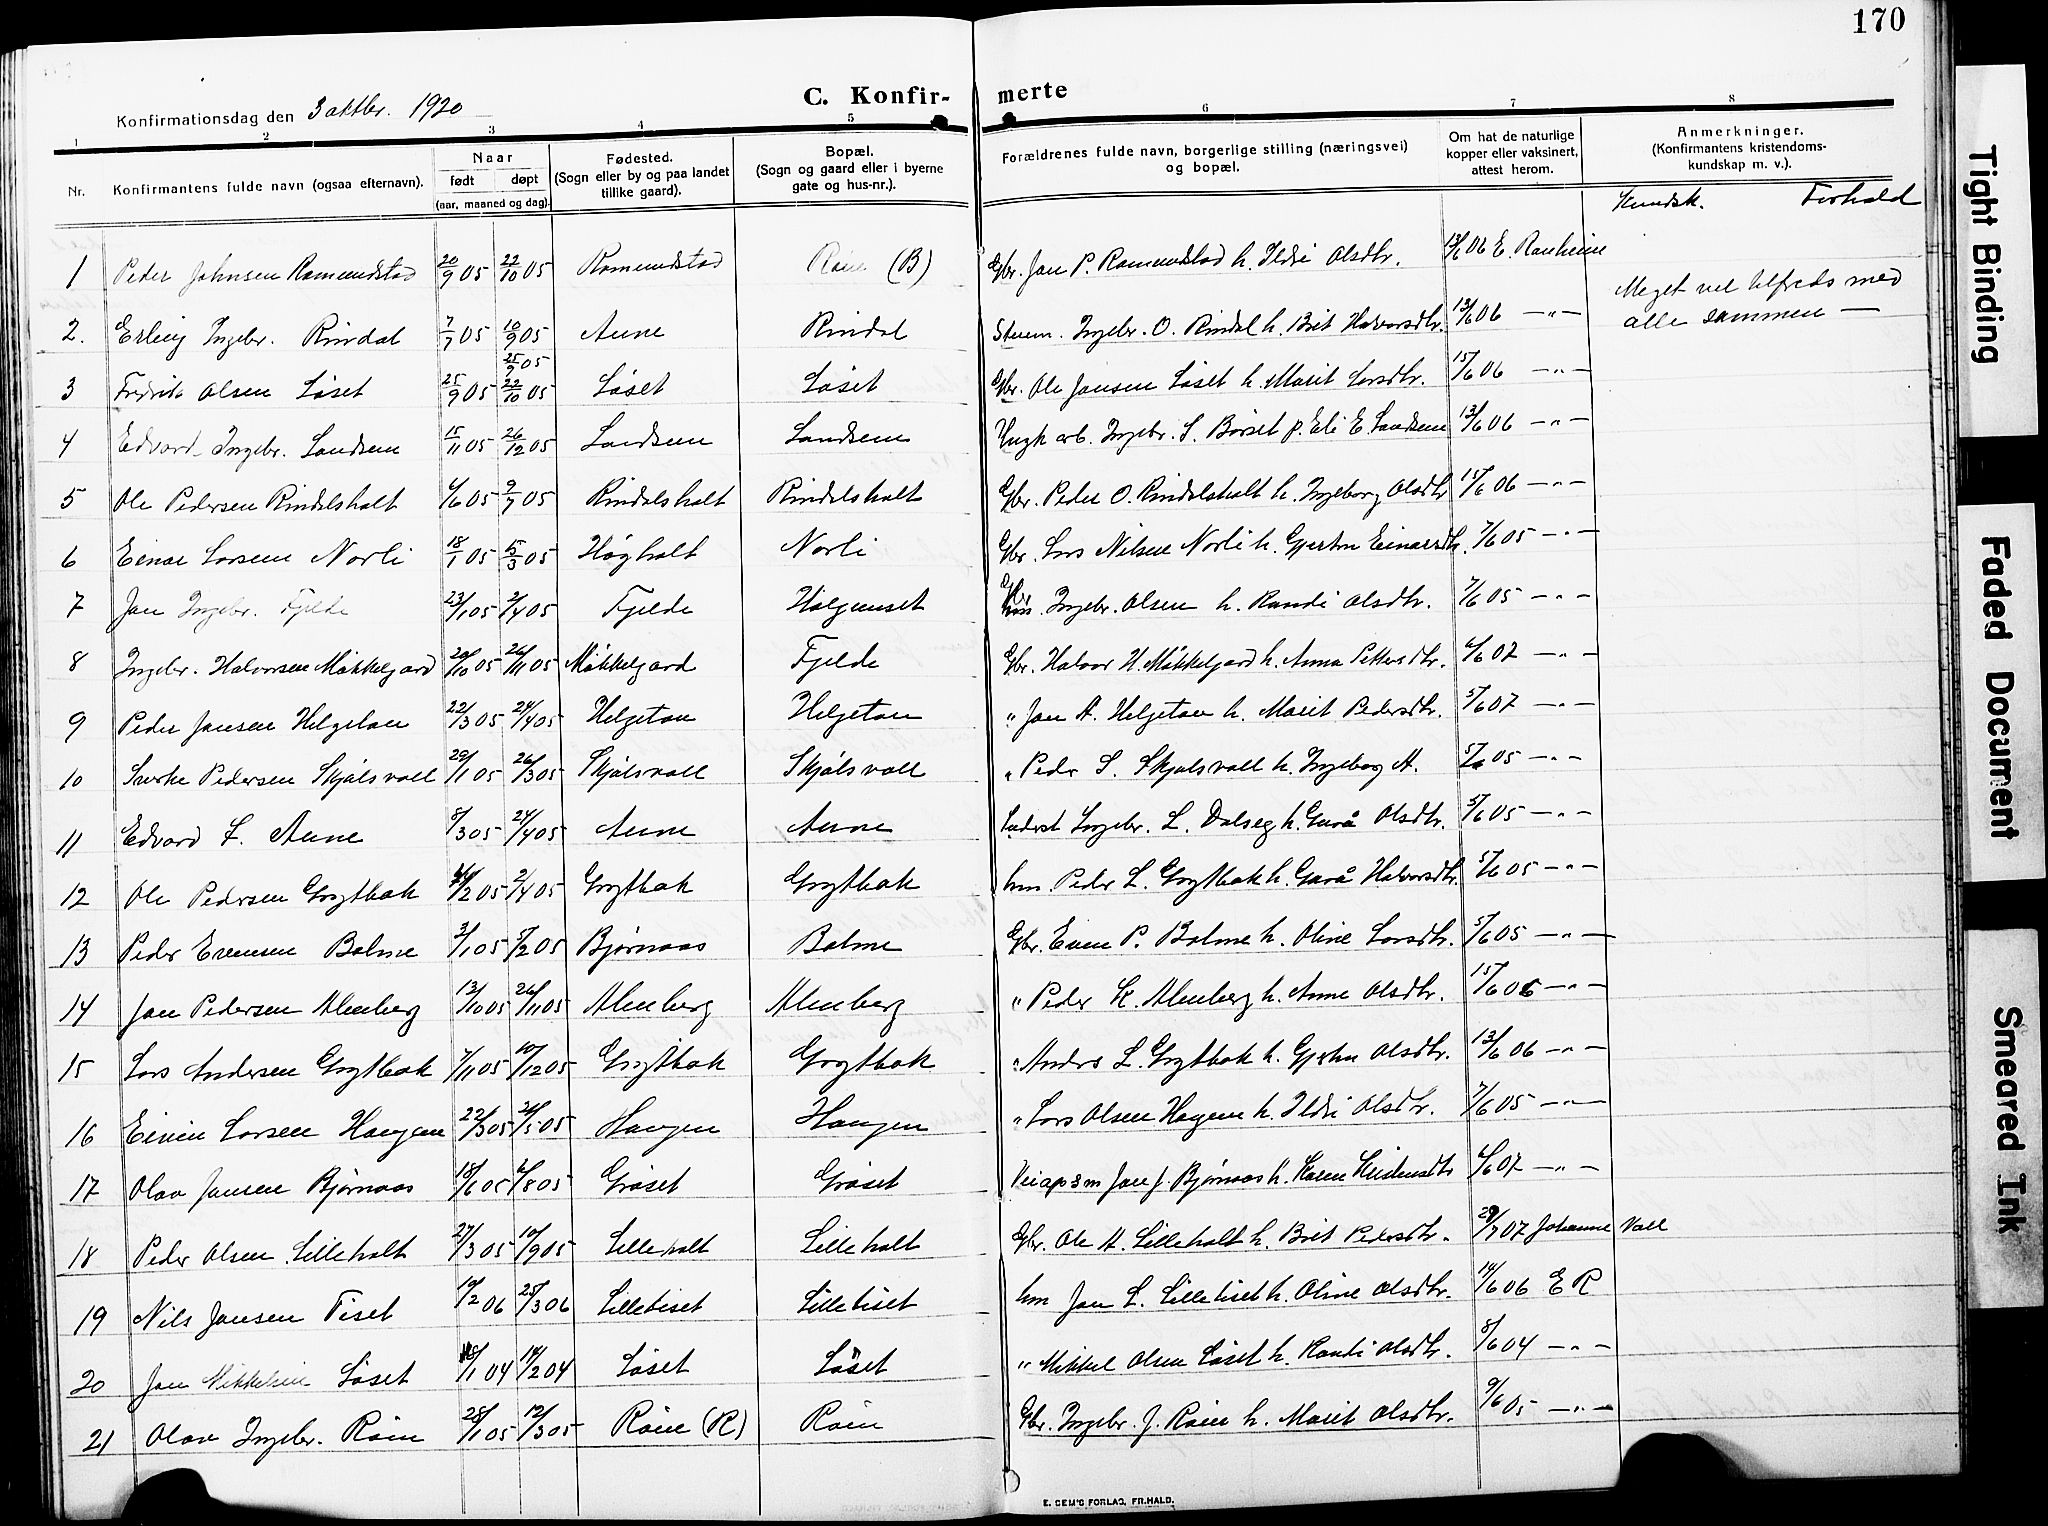 170
C. Konfir- merte
Konfirmationsdag den 3 oktbr. 1920
1 2 3 4 5 6 7 8
Nr. Konfirmantens fulde navn (ogsaa efternavn). Naar født døpt (aar, maaned og dag). Fødested. (Sogn eller by og paa landet tillike gaard). Bopæl. (Sogn og gaard eller i byerne gate og hus-nr.). Forældrenes fulde navn, borgerlige stilling (næringsvei) og bopæl. Om hat de naturlige kopper eller vaksinert, attest herom. Anmerkninger. (Konfirmantens kristendoms-kundskap m. v.).
Kundsk. Forhold
1 Peder Johnsen Romundstad 20/9 05 22/10 05 Romundstad Røen (B) Gbr. Jon P. Romundstad h. Ildri Olsdtr. 13/6 06 E. Ranheim
Meget vel tilfreds med
2. Erling Ingebr. Rindal 7/7 05 10/9 05 Aune Rindal Ingebr. O. Rindal h. Brit Halvorsdtr. 13/6 06 —"— alle sammen —
25/9 05
3 Fredrik Olsen Løset 25/9 05 22/10 05 Løset Løset Gbr. Ole Jonsen Løset h. Marit Larsdtr. 15/6 06 —"—
4 Edvard Ingebr. Landsem 15/11 05 26/12 05 Landsem Landsem Ungk arb. Ingebr. S. Børset p. Eli E. Landsem 13/6 06 —"—
5 Ole Pedersen Rindalsholt 4/6 05 9/7 05 Rindalsholt Rindalsholt Gbr. Peder O. Rindalsholt h. Ingeborg Olsdtr 15/6 06 —"—
6 Einar Larsen Norli 18/1 05 5/3 05 Høgholt Norli Gbr. Lars Nilsen Norli h. Gjertru Einarsdtr. 7/6 05 —"—
7 Jon Ingebr. Fjelde 23/1 05 2/4 05 Fjelde Holgunset Gbr Ingebr. Olsen h. Randi Olsdtr. 7/6 05 —"—
8 Ingebr. Halvorsen Møkkelgard 20/10 05 26/11 05 Møkkelgard Fjelde Gbr. Halvor H. Møkkelgard h. Anna Pettersdtr. 4/6 07 —"—
9 Peder Jonsen Helgeton 22/3 05 24/4 05 Helgeton Helgeton " Jon A. Helgeton h. Marit Pedersdtr. 5/6 07 —"—
10 Sverke Pedersen Skjølsvoll 29/1 05 26/3 05 Skjølsvoll Skjølsvoll " Peder S. Skjølsvoll h. Ingeborg A. 5/6 05 —"—
11 Edvard L. Aune 8/3 05 24/4 05 Aune Aune Inderst Ingebr. L. Dalseg h. Gurå Olsdtr. 5/6 05 —"—
12 Ole Pedersen Grytbak 2 05 2/4 05 Grytbak Grytbak hm. Peder L. Grytbak h. Gurå Halvorsdtr. 5/6 05 —"—
13 Peder Evensen Bolme 3/1 05 5/2 05 Bjørnaas Bolme Gbr. Even P. Bolme h. Oline Larsdtr. 5/6 05 —"—
14 Jon Pedersen Almberg 13/10 05 26/11 05 Almberg Almberg " Peder K. Almberg h. Anne Olsdtr. 15/6 06 —"—
15 Lars Andersen Grytbak 7/11 05 10/12 05 Grytbak Grytbak " Anders L. Grytbak h. Gjertru Olsdtr. 13/6 06 —"—
16 Einen Larsen Haugen 22/3 05 21/5 05 Haugen Haugen " Lars Olsen Haugen h. Ildri Olsdtr. 7/6 05 —"—
17 Olav Jonsen Bjørnaas 18/6 05 6/8 05 Grøset Grøset Veiopsm Jon J. Bjørnaas h. Karen Kristensdtr 4/6 07 —"—
18 Peder Olsen Lilleholt 27/3 05 10/9 05 Lilleholt Lilleholt Gbr. Ole A. Lilleholt h. Brit Pedersdtr. 29/7 07 Johanne Voll
19 Nils Jonsen Tiset 19/2 06 25/3 06 Lilletiset Lilletiset hm Jon L. Lilletiset h. Oline Olsdtr. 14/6 06 E R
20 Jon Mikkelsen Løset 18/1 04 14/2 04 Løset Løset " Mikkel Olsen Løset h. Randi Olsdtr. 8/6 04 —"—
21 Olav Ingebr. Røen 28/1 05 12/3 05 Røen (R) Røen Gbr. Ingebr. J. Røen h. Marit Olsdtr. 9/6 05 —"—
E. SEM'S FORLAG, FR.HALD.
Tight Binding
Faded Document
Smeared Ink